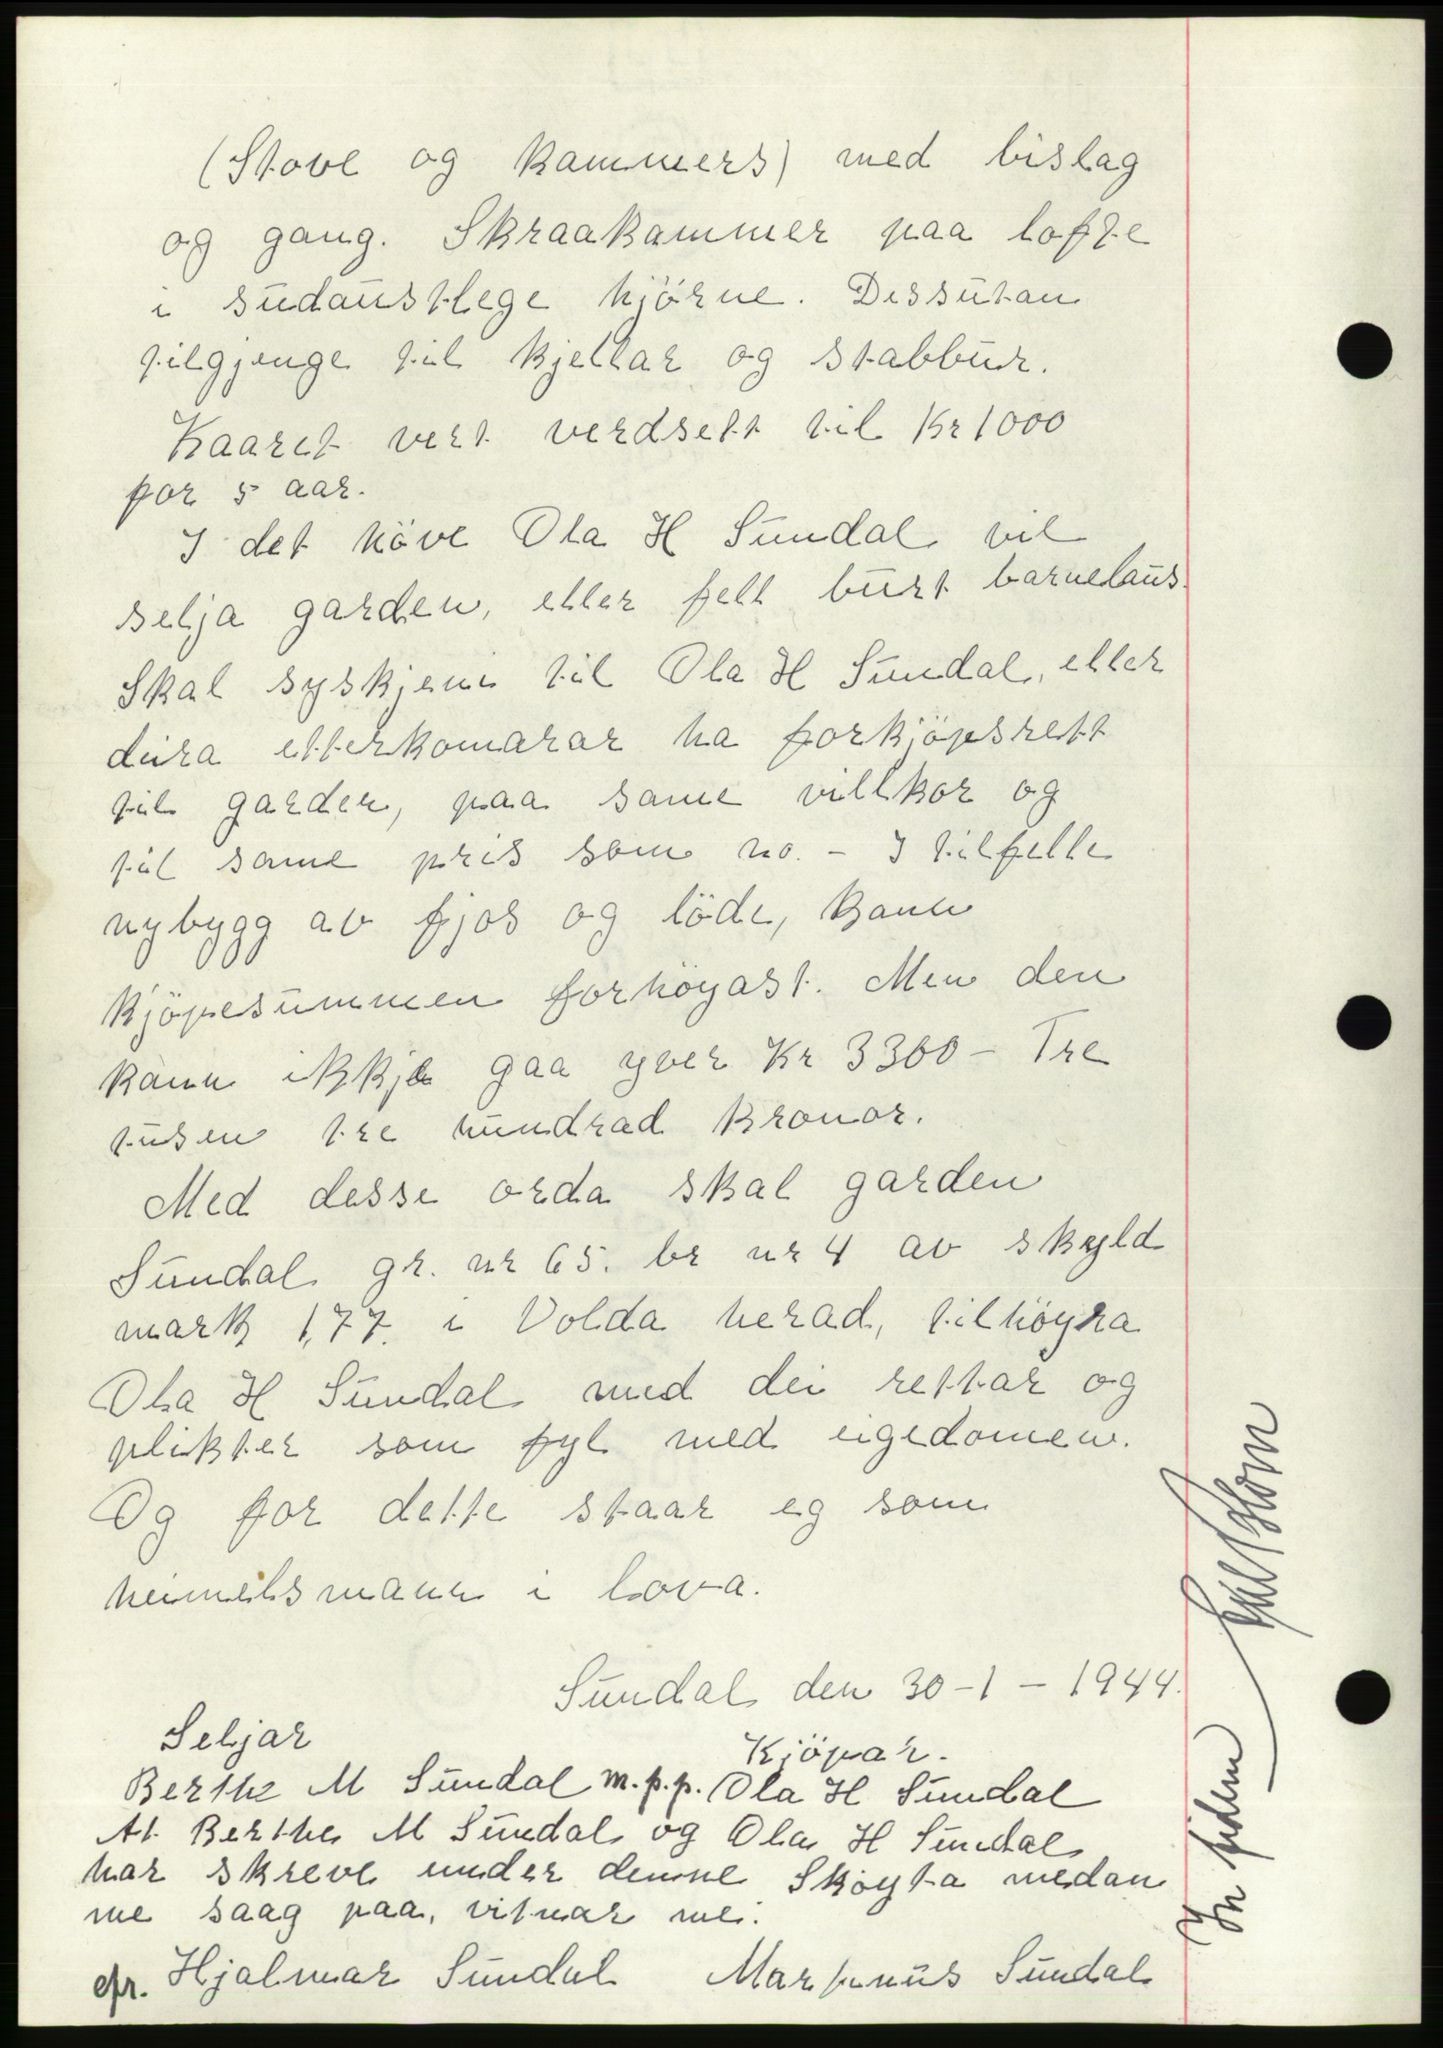 (Stove og kammers) med bislag
og gang. Skraakammer paa lofte
i sudaustlege hjörne. Dessutan
tilgjenge til kjellar og stabbur.
Kaaret vert verdsett til Kr 1000
for 5 aar.
I det höve Ola H Sundal vil
selja garden, eller fell burt barnelaus
skal syskjeni til Ola H Sundal, eller
deira etterkomarar ha forkjöpsrett
til garden, paa same villkor og
til same pris som no. - I tilfelle
nybygg av fjos og löde, kann
kjöpesummen forhögast. Men den
kann ikkje gaa yver Kr 3300 - Tre
tusen tre hundrad kronor.
Med desse orda skal garden
Sundal gr. nr 65. br nr 4 av skyld
mark 1,77. i Volda herad, tilhöyra
Ola H Sundal med dei rettar og
plikter som fyl med eigedomen.
Og for dette staar eg som
heimelsmann i lova.
Sundal den 30-1-1944.
Seljar
Kjöpar.
Berthe M Sundal m.p.p. Ola H Sundal
At Berthe M Sundal og Ola H Sundal
har skreve under denne Sköyta medan
me saag paa, vitnar me:
efr. Hjalmar Sundal Martinus Sundal
In fidem